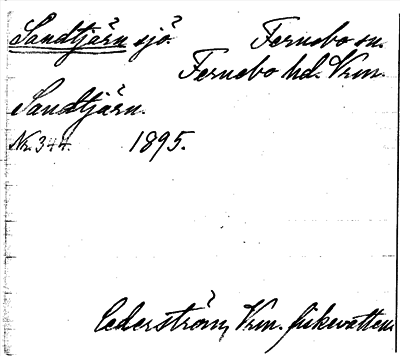 Sandtjärn sjö. Fernebo sn.
Fernebo hd. Vrm.
Sandtjärn.
Nr. 344. 1895.
Cederström, Vrm. fiskevatten.